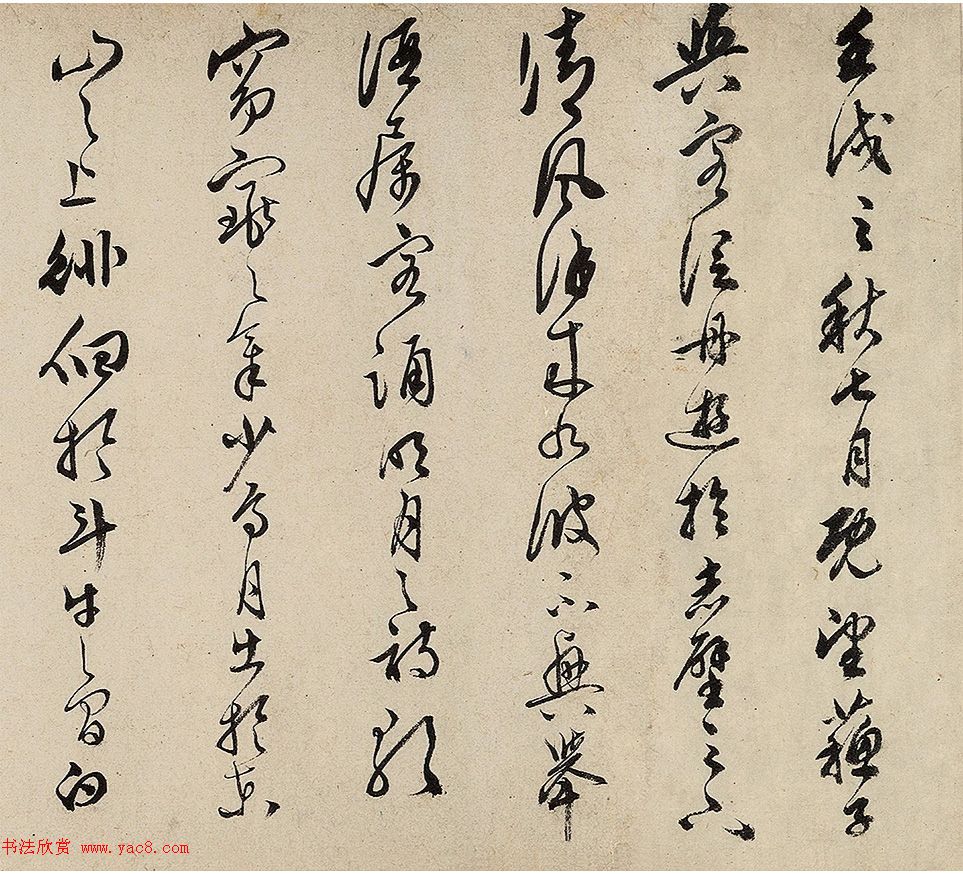 壬戌之秋七月既望蘇子
與客泛舟遊於赤壁之下
清風徐來水波不興舉
酒屬客誦明月之詩歌
窈窕之章少焉月出於東
山之上徘徊於斗牛之間白
书法欣赏 www.yac8.com